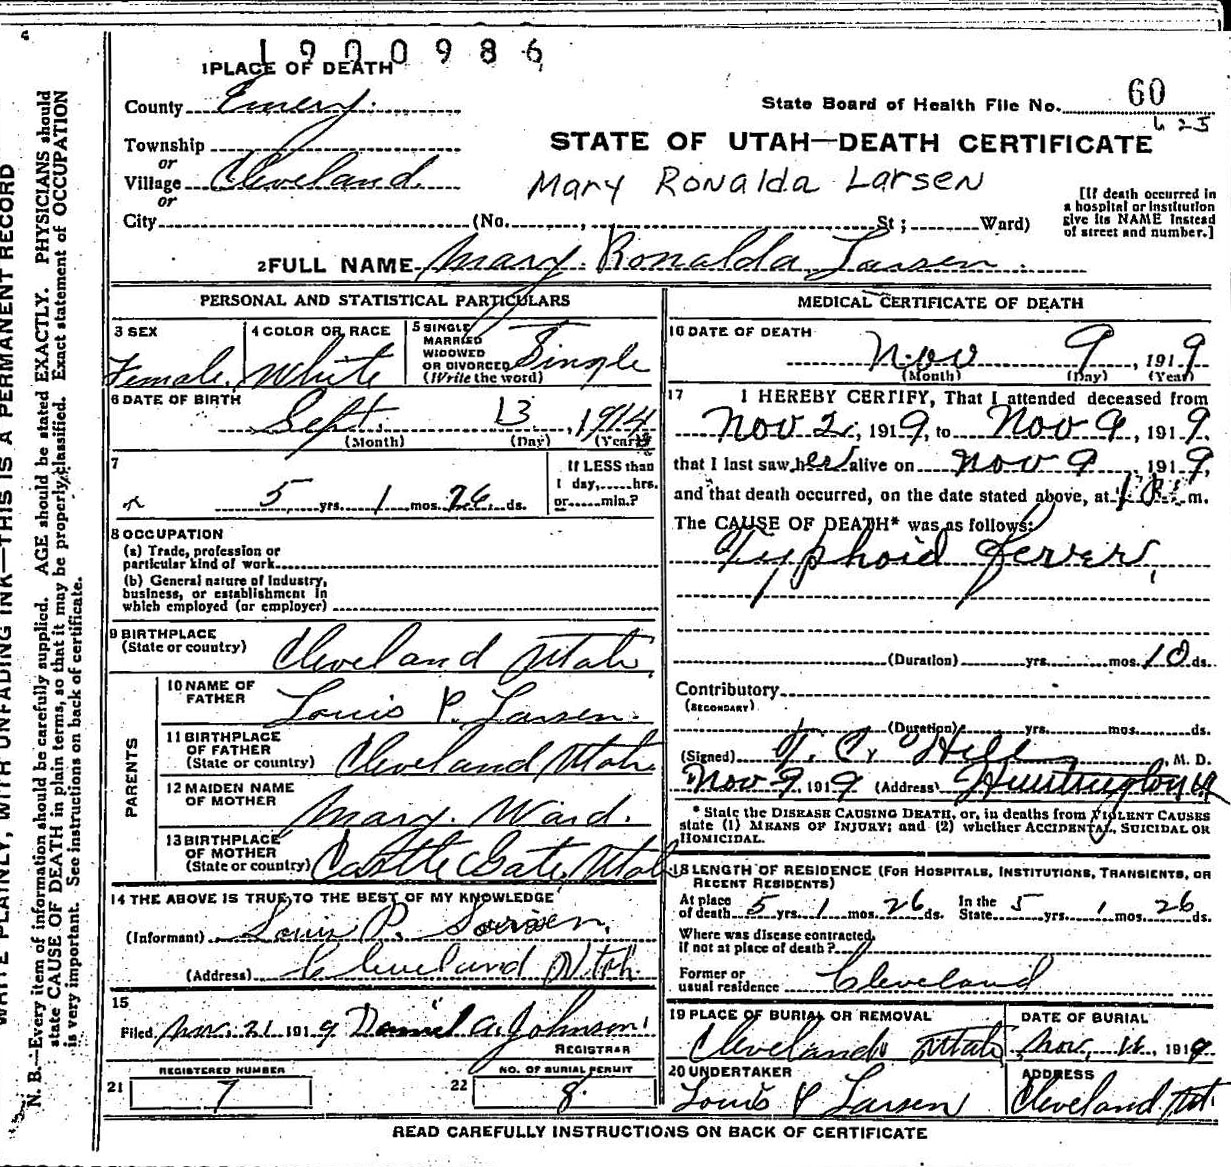 1900986
1 PLACE OF DEATH
County Emery.
State Board of Health File No. 60
625
Township
or
Village Cleveland.
or
City (No. , St ; Ward)
STATE OF UTAH—DEATH CERTIFICATE
Mary Ronalda Larsen
[If death occurred in
a hospital or institution
give its NAME instead
of street and number.]
2 FULL NAME Mary Ronalda Larsen.
PERSONAL AND STATISTICAL PARTICULARS
3 SEX
Female.
4 COLOR OR RACE
White
5 SINGLE
MARRIED
WIDOWED
OR DIVORCED
(Write the word)
Single
6 DATE OF BIRTH
Sept. 13, 1914
(Month) (Day) (Year)
7
5 yrs. 1 mos. 26 ds.
If LESS than
1 day, hrs.
or min.?
8 OCCUPATION
(a) Trade, profession or
particular kind of work
(b) General nature of Industry,
business, or establishment in
which employed (or employer)
9 BIRTHPLACE
(State or country) Cleveland Utah
PARENTS
10 NAME OF
FATHER Louis P. Larsen.
11 BIRTHPLACE
OF FATHER
(State or country) Cleveland Utah
12 MAIDEN NAME
OF MOTHER Mary. Ward.
13 BIRTHPLACE
OF MOTHER
(State or country) Castle Gate, Utah
14 THE ABOVE IS TRUE TO THE BEST OF MY KNOWLEDGE
(Informant) Louis P.
(Address) Cleveland Utah.
15
Filed Nov. 21 1919 Daniel A. Johnson
REGISTRAR
21 REGISTERED NUMBER
7
22 NO. OF BURIAL PERMIT
8
MEDICAL CERTIFICATE OF DEATH
16 DATE OF DEATH
Nov 9, 1919
(Month) (Day) (Year)
17 I HEREBY CERTIFY, That I attended deceased from
Nov 2, 1919, to Nov 9, 1919.
that I last saw her alive on Nov 9, 1919,
and that death occurred, on the date stated above, at m.
The CAUSE OF DEATH* was as follows:
Typhoid fever,
(Duration) yrs. mos. 10 ds.
Contributory
(SECONDARY)
(Duration) yrs. mos. ds.
(Signed) T. C. Hill, M. D.
Nov 9, 1919 (Address) Huntington Ut
* State the DISEASE CAUSING DEATH, or, in deaths from VIOLENT CAUSES
state (1) MEANS OF INJURY; and (2) whether ACCIDENTAL, SUICIDAL OR
HOMICIDAL.
18 LENGTH OF RESIDENCE (FOR HOSPITALS, INSTITUTIONS, TRANSIENTS, OR
RECENT RESIDENTS)
At place
of death 5 yrs. 1 mos. 26 ds. In the
State 5 yrs. 1 mos. 26
Where was disease contracted,
if not at place of death?
Former or
usual residence Cleveland
19 PLACE OF BURIAL OR REMOVAL
Cleveland Utah
DATE OF BURIAL
Nov, 11, 1919
20 UNDERTAKER
Louis P Larsen
ADDRESS
Cleveland Ut.
READ CAREFULLY INSTRUCTIONS ON BACK OF CERTIFICATE
WRITE PLAINLY, WITH UNFADING INK—THIS IS A PERMANENT RECORD
N. B.—Every item of information should be carefully supplied. AGE should be stated EXACTLY. PHYSICIANS should
state CAUSE OF DEATH in plain terms, so that it may be properly classified. Exact statement of OCCUPATION
is very important. See instructions on back of certificate.